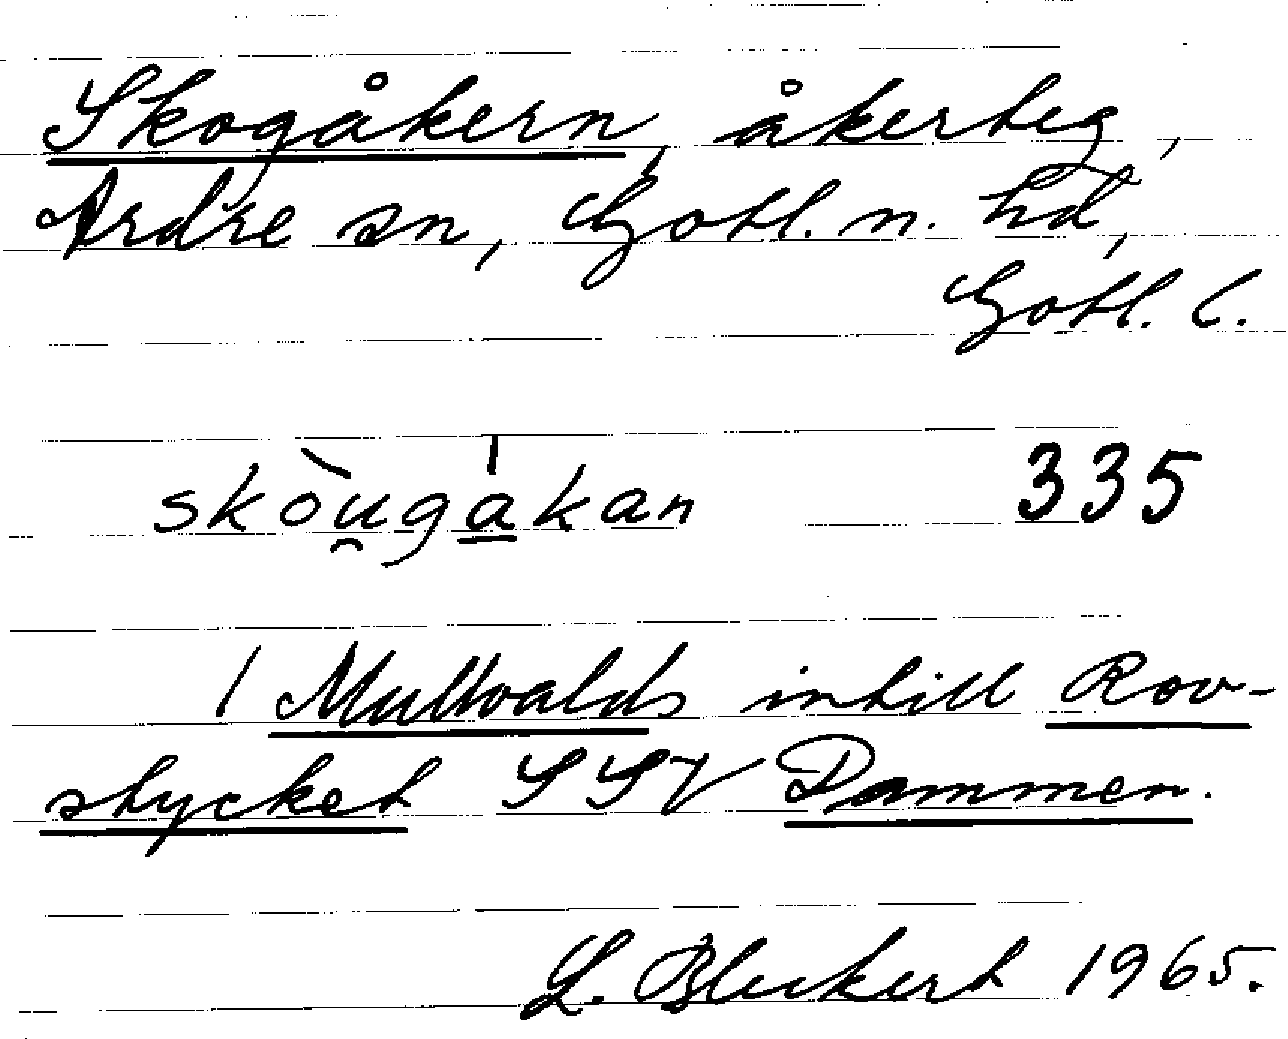 Skogåkern, åkerteg,
Ardre sn, Gotl. n. hd,
Gotl. l.
skòu̯ga̲̍kan 335
I Mullvalds intill Rov-
stycket SSV Dammen.
L. Bleckert 1965.